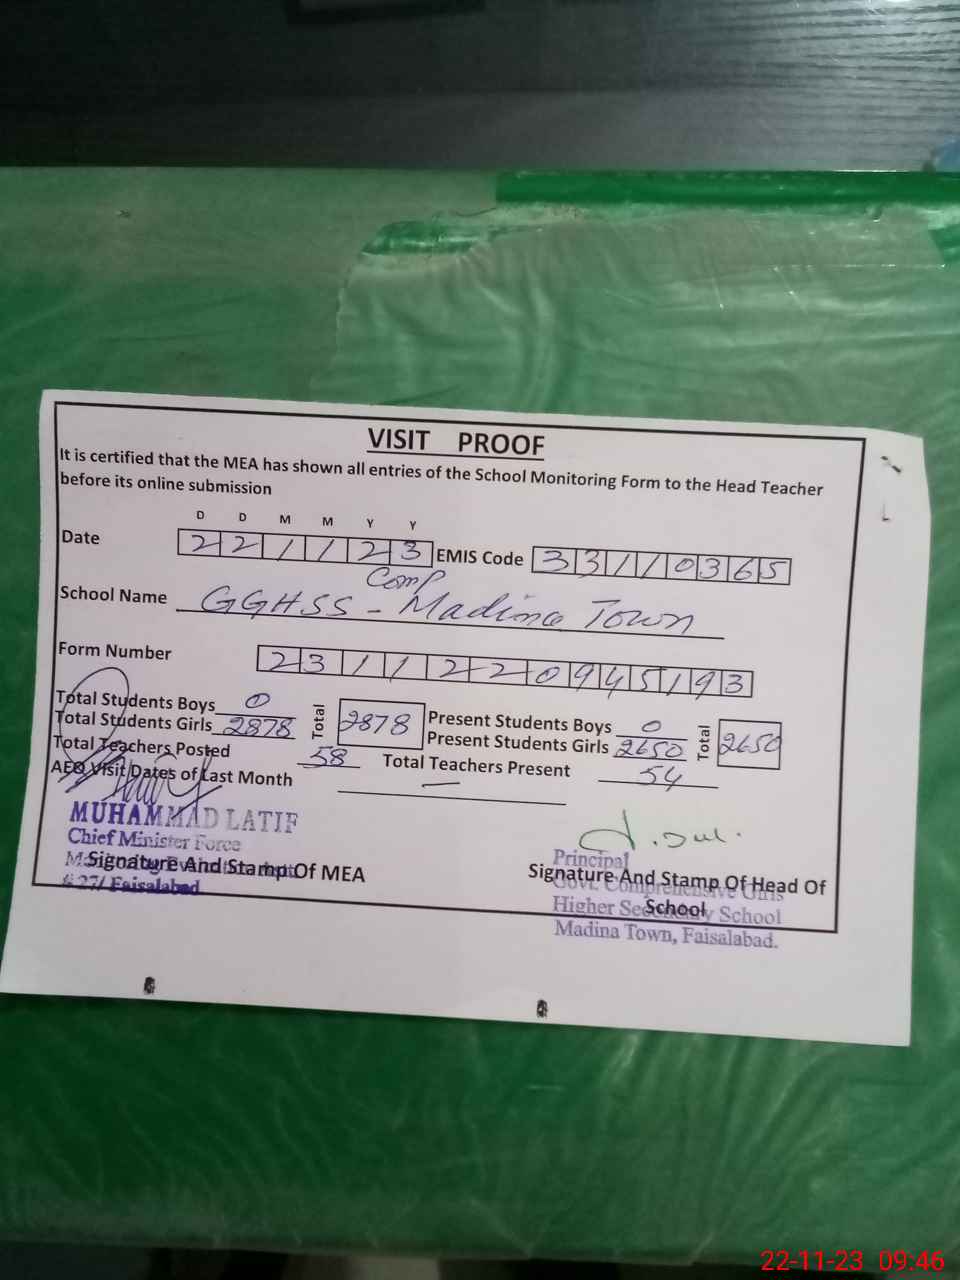 VISIT PROOF
It is certified that the MEA has shown all entries of the School Monitoring Form to the Head Teacher
before its online submission
D D M M Y Y
Date 2 2 1 1 2 3 EMIS Code 3 3 1 1 0 3 6 5
Comp
School Name GGHSS - Madina Town
Form Number 2 3 1 1 2 2 0 9 4 5 1 9 3
Total Students Boys 0
Total Students Girls 2878
Total 2878
Present Students Boys 0
Present Students Girls 2650
Total 2650
Total Teachers Posted 58 Total Teachers Present 54
AEO Visit Dates of Last Month —
MUHAMMAD LATIF
Chief Minister Force
Signature And Stamp Of MEA
# 27/ Faisalabad
Principal
Signature And Stamp Of Head Of
School
Govt. Comprehensive Girls
Higher Secondary School
Madina Town, Faisalabad.
22-11-23 09:46